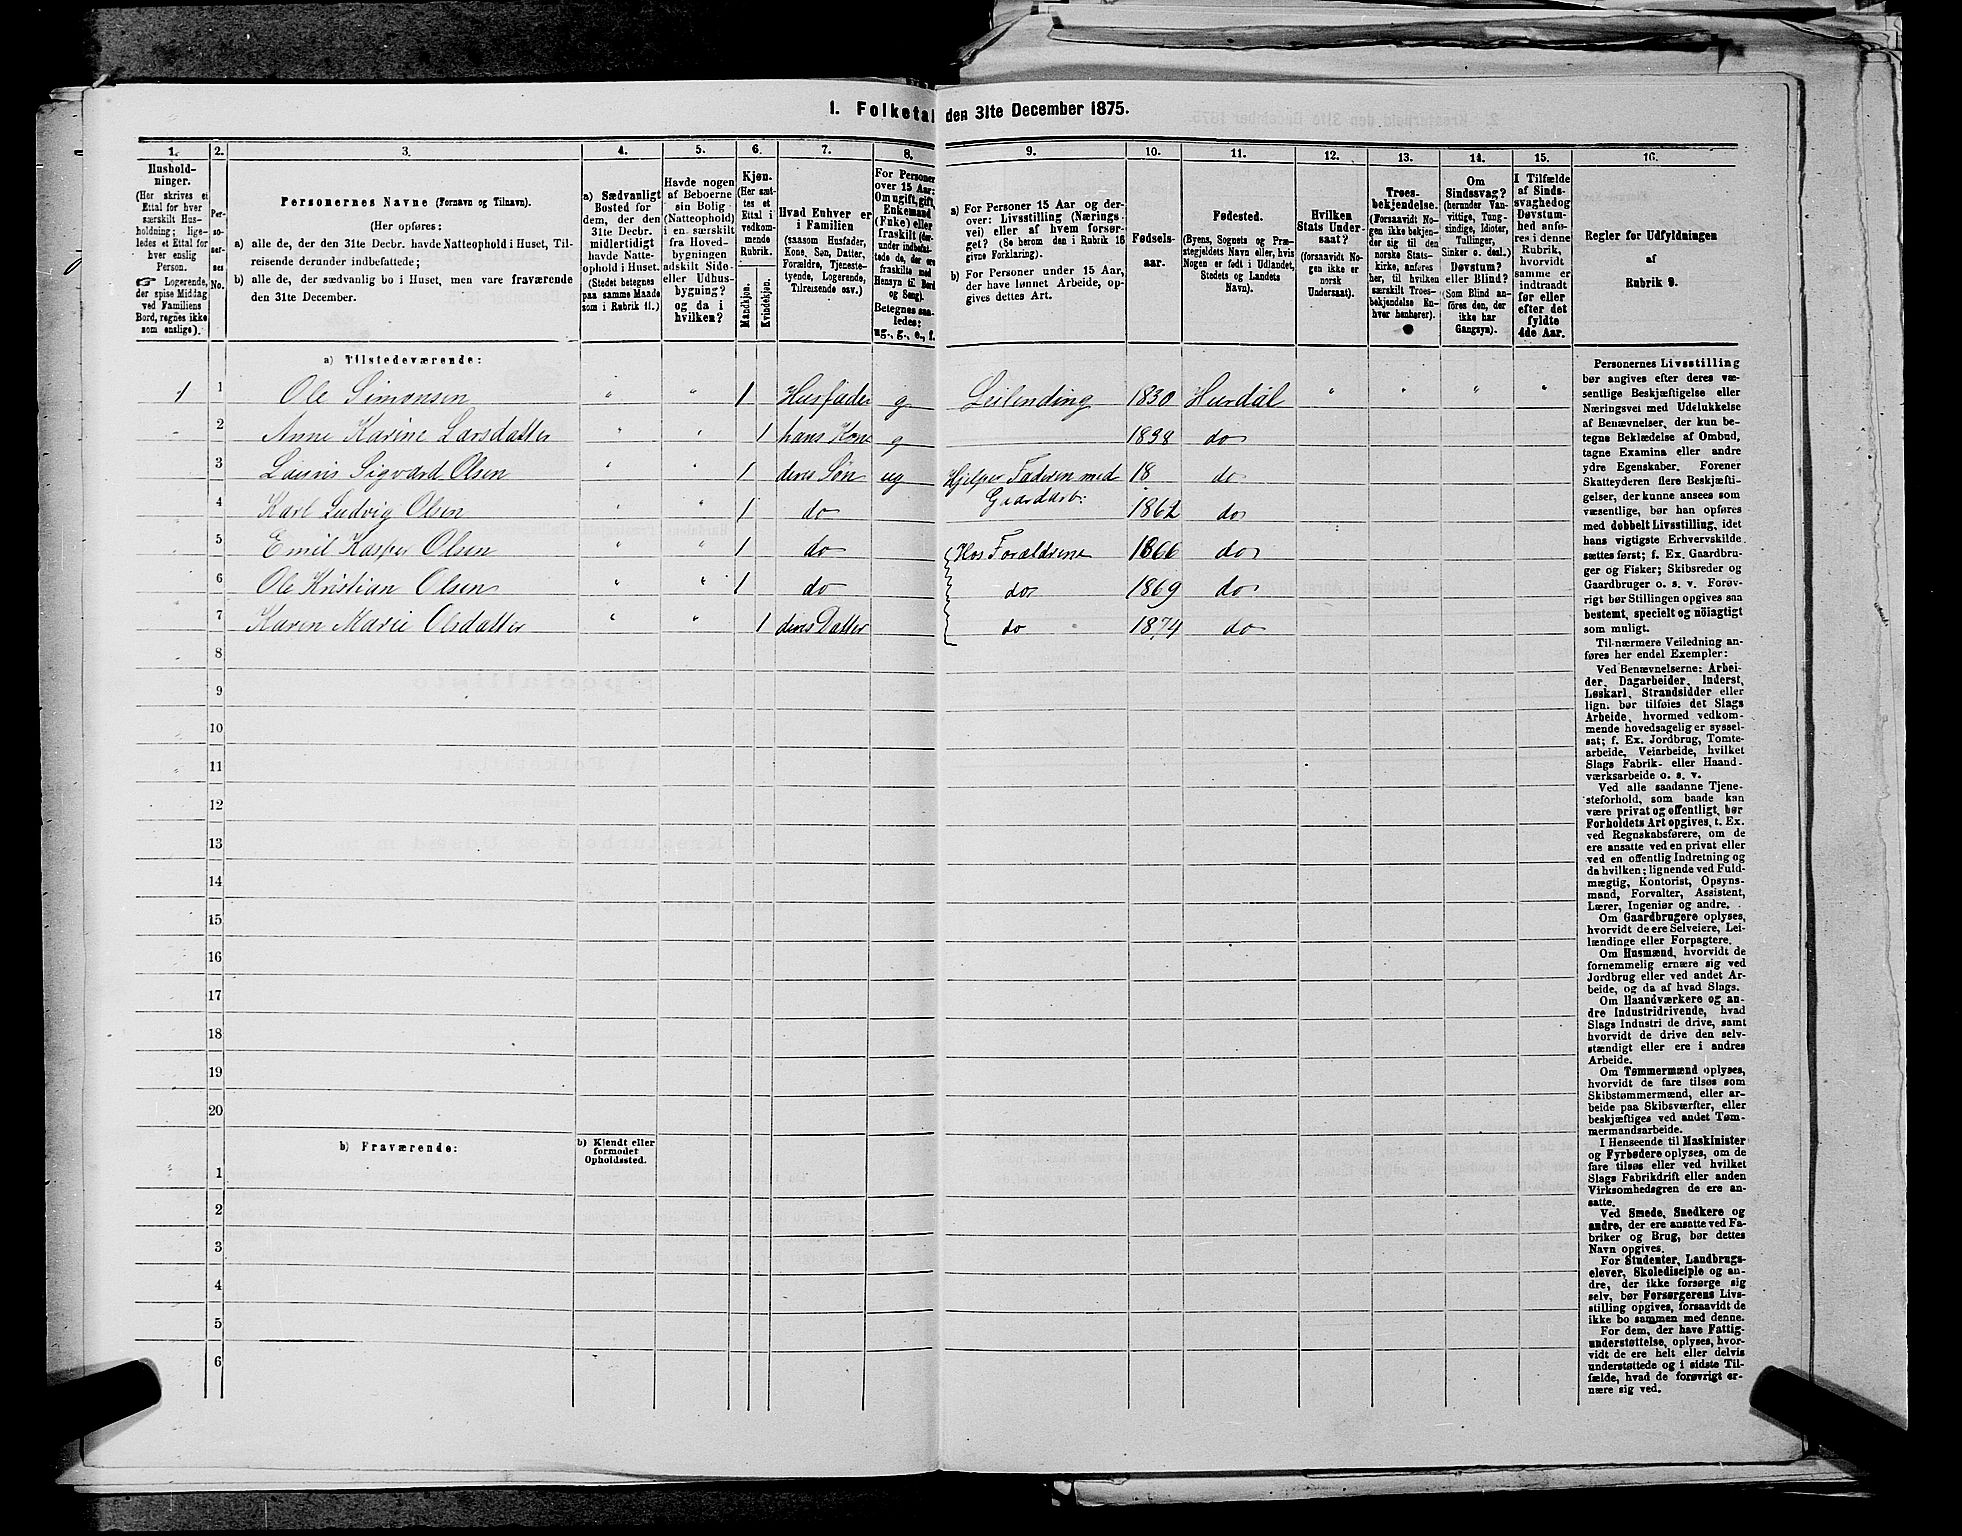 1. Folketal den 31te December 1875.
1. 2. 3. 4. 5. 6. 7. 8. 9. 10. 11. 12. 13. 14. 15. 16.
Hushold-
ninger.
(Her skrives et
Ettal for hver
særskilt Hus-
holdning; lige-
ledes et Ettal for
hver enslig
Person.
☞ Logerende,
der spise Middag
ved Familiens
Bord, regnes ikke
som enslige).
Per-
so-
ner-
nes
No.
Personernes Navne (Fornavn og Tilnavn).
(Her opføres:
a) alle de, der den 31te Decbr. havde Natteophold i Huset, Til-
reisende derunder indbefattede;
b) alle de, der sædvanlig bo i Huset, men vare fraværende
den 31te December.
a) Sædvanligt
Bosted for
dem, der den
31te Decbr.
midlertidigt
havde Natte-
ophold i Huset.
(Stedet betegnes
paa samme Maade
som i Rubrik 11.)
Havde nogen
af Beboerne
sin Bolig
(Natteophold)
i en særskilt
fra Hoved-
bygningen
adskilt Side-
eller Udhus-
bygning?
og da i
hvilken?
Kjøn.
(Her sæt-
tes et
Ettal i
vedkom-
mende
Rubrik.
Mandkjøn.
Kvindekjøn.
Hvad Enhver er
i Familien
(saasom Husfader,
Kone, Søn, Datter,
Forældre, Tjeneste-
tyende, Logerende,
Tilreisende osv.)
For Personer
over 15 Aar:
Om ugift, gift,
Enkemand
(Enke) eller
fraskilt (der-
under indbefat-
tede de, der ere
fraskilte med
Hensyn til Bord
og Seng).
Betegnes saa-
ledes:
ug., g., e., f.
a) For Personer 15 Aar og der-
over: Livsstilling (Nærings-
vei) eller af hvem forsør-
get? (Se herom den i Rubrik 16
givne Forklaring).
b) For Personer under 15 Aar,
der have lønnet Arbeide, op-
gives dettes Art.
Fødsels-
aar.
Fødested.
(Byens, Sognets og Præ-
stegjeldets Navn eller, hvis
Nogen er født i Udlandet,
Stedets og Landets
Navn).
Hvilken
Stats Under-
saat?
(forsaavidt No-
gen ikke er
norsk
Undersaat).
Troes-
bekjendelse.
(Forsaavidt No-
gen ikke bekjen-
der sig til den
norske Stats-
kirke, anføres
her, til hvilken
særskilt Troes-
bekjendelse En-
hver henhører).
Om
Sindssvag?
(herunder Van-
vittige, Tung-
sindige, Idioter,
Tullinger,
Sinker o. desl.).
Døvstum?
eller Blind?
(Som Blind an-
føres den, der
ikke har
Gangsyn).
I Tilfælde
af Sinds-
svaghed og
Døvstum-
hed anfø-
res i denne
Rubrik,
hvorvidt
samme er
indtraadt
før eller
efter det
fyldte
4de Aar.
Regler for Udfyldningen
af
Rubrik 9.
a) Tilstedeværende:
1 1 Ole Simonsen " " 1 Husfader g Leilending 1830 Hurdal " " " "
2 Anne Karine Larsdatter " " 1 hans Kone g 1838 do
3 Sigvard Olsen " " 1 deres Søn ug Hjelper Faderen med 18 do
Gaardarb:
4 Karl Ludvig Olsen " " 1 do 1862 do
5 Emil Kasper Olsen " " 1 do Hos Forældrene 1866 do
6 Ole Kristian Olsen " " 1 do do 1869 do
7 Karen Marie Olsdatter " " 1 deres Datter do 1874 do
8
9
10
11
12
13
14
15
16
17
18
19
20
b) Fraværende:
b) Kjendt eller
formodet
Opholdssted.
1
2
3
4
5
6
Personernes Livsstilling
bør angives efter deres væ-
sentlige Beskjæftigelse eller
Næringsvei med Udelukkelse
af Benævnelser, der kun be-
tegne Beklædelse af Ombud,
tagne Examina eller andre
ydre Egenskaber. Forener
Skatteyderen flere Beskjæfti-
gelser, der kunne ansees som
væsentlige, bør han opføres
med dobbelt Livsstilling, idet
hans vigtigste Erhvervskilde
sættes først; f. Ex. Gaardbru-
ger og Fisker; Skibsreder og
Gaardbruger o. s. v. Forøv-
rigt bør Stillingen opgives saa
bestemt, specielt og nøiagtigt
som muligt.
Til nærmere Veiledning an-
føres her endel Exempler:
Ved Benævnelserne: Arbei-
der, Dagarbeider, Inderst,
Løskarl, Strandsidder eller
lign. bør tilføies det Slags
Arbeide, hvormed vedkom-
mende hovedsagelig er syssel-
sat; f. Ex. Jordbrug, Tomte-
arbeide, Veiarbeide, hvilket
Slags Fabrik- eller Haand-
værksarbeide o. s. v.
Ved alle saadanne Tjene-
steforhold, som baade kan
være privat og offentligt, bør
Forholdets Art opgives, t. Ex.
ved Regnskabsførere, om de
ere ansatte ved en privat eller
ved en offentlig Indretning og
da hvilken; lignende ved Fuld-
mægtig, Kontorist, Opsyns-
mand, Forvalter, Assistent,
Lærer, Ingeniør og andre.
Om Gaardbrugere oplyses,
hvorvidt de ere Selveiere, Lei-
lændinge eller Forpagtere.
Om Husmænd, hvorvidt de
fornemmelig ernære sig ved
Jordbrug eller ved andet Ar-
beide, og da af hvad Slags.
Om Haandværkere og an-
dre Industridrivende, hvad
Slags Industri de drive, samt
hvorvidt de drive den selv-
stændigt eller ere i andres
Arbeide.
Om Tømmermænd oplyses,
hvorvidt de fare tilsøs som
Skibstømmermænd, eller ar-
beide paa Skibsværfter, eller
beskjæftiges ved andet Tøm-
mermandsarbeide.
I Henseende til Maskinister
og Fyrbødere oplyses, om de
fare tilsøs eller ved hvilket
Slags Fabrikdrift eller anden
Virksomhedsgren de ere an-
satte.
Ved Smede, Snedkere og
andre, der ere ansatte ved Fa-
briker og Brug, bør dettes
Navn opgives.
For Studenter, Landbrugs-
elever, Skoledisciple og an-
dre, der ikke forsørge sig
selv, bør Forsørgerens Livs-
stilling opgives, forsaavidt de
ikke bo sammen med denne.
For dem, der have Fattig-
understøttelse, oplyses, hvor-
vidt de ere helt eller delvis
understøttede og i sidste Til-
fælde, hvad de forøvrigt er-
nære sig ved.